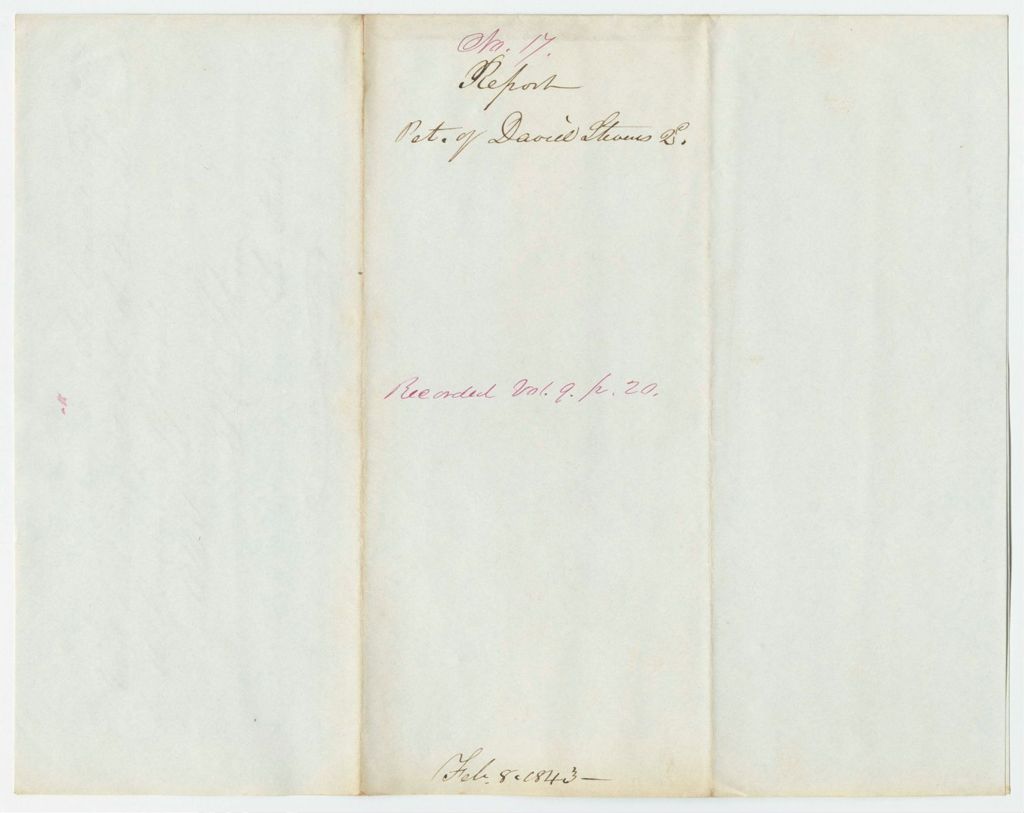 No. 17.
Report
Pet. of David Stevens 2d.
Recorded Vol. 9. p. 20.
Feb. 8. 1843